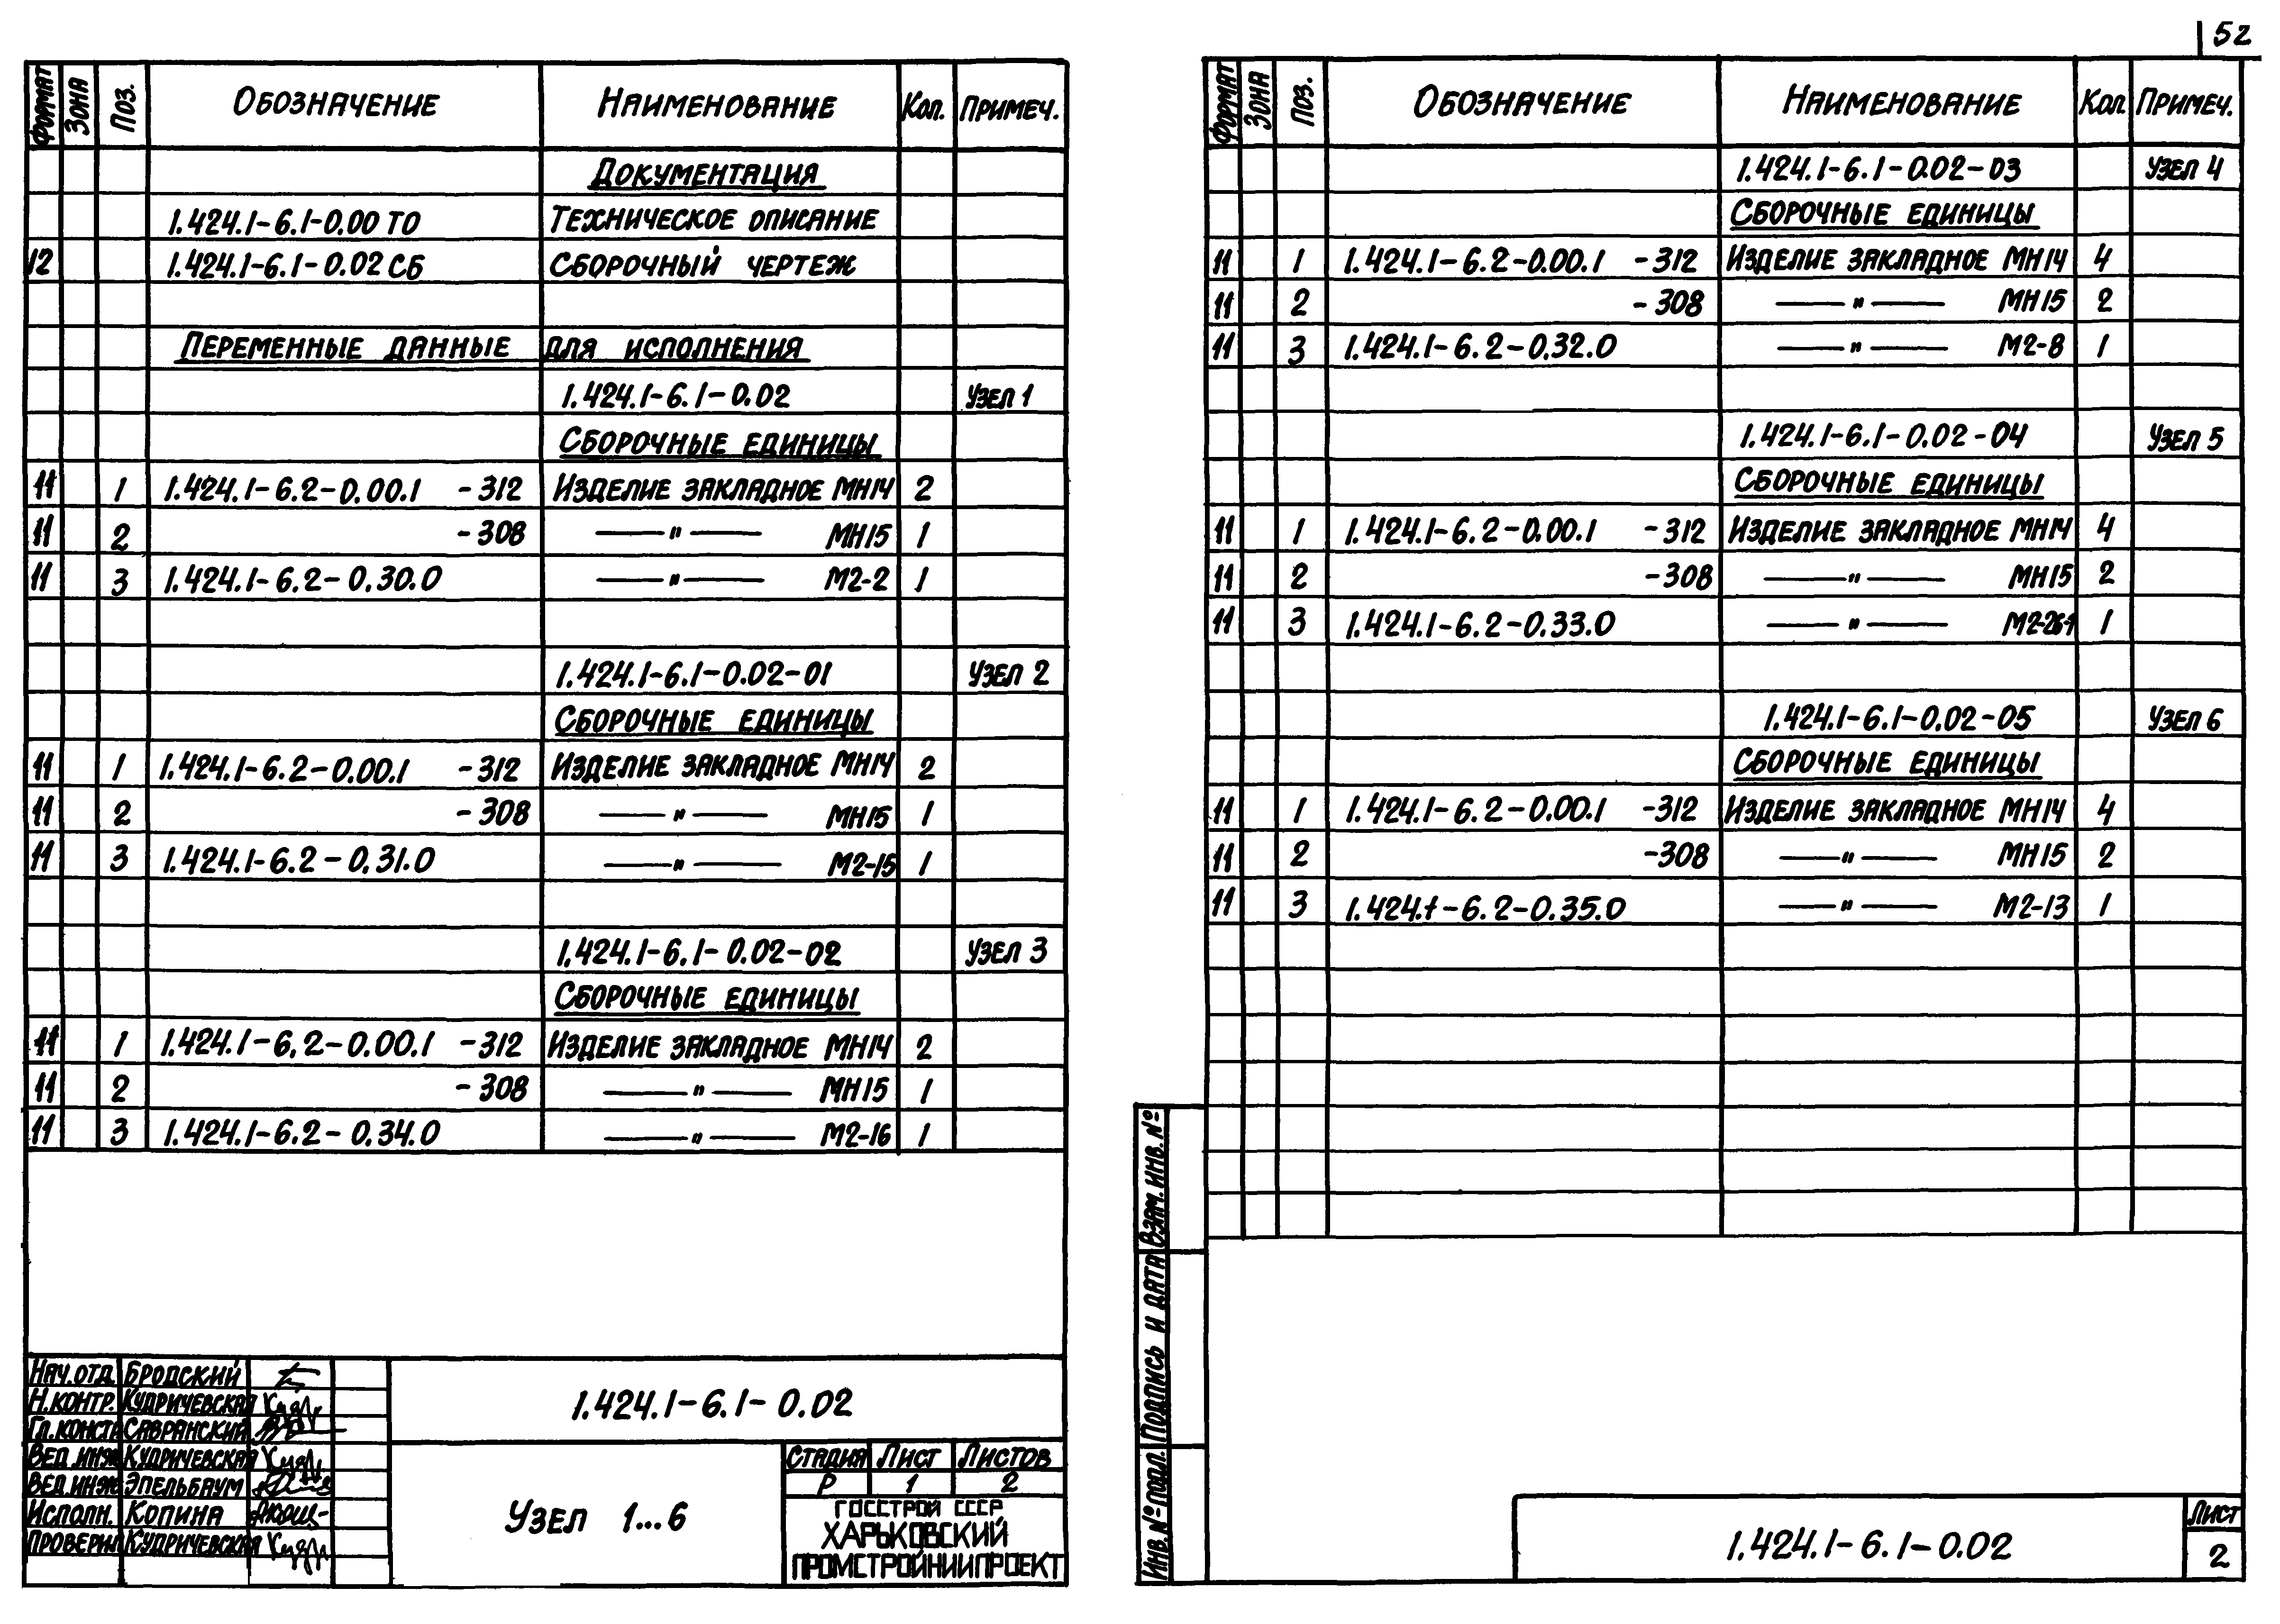 52
ФОРМАТ ЗОНА ПОЗ. ОБОЗНАЧЕНИЕ НАИМЕНОВАНИЕ КОЛ. ПРИМЕЧ.
ДОКУМЕНТАЦИЯ
1.424.1-6.1-0.00 ТО ТЕХНИЧЕСКОЕ ОПИСАНИЕ
12 1.424.1-6.1-0.02 СБ СБОРОЧНЫЙ ЧЕРТЕЖ
ПЕРЕМЕННЫЕ ДАННЫЕ ДЛЯ ИСПОЛНЕНИЯ
1.424.1-6.1-0.02 УЗЕЛ 1
СБОРОЧНЫЕ ЕДИНИЦЫ
11 1 1.424.1-6.2-0.00.1 -312 ИЗДЕЛИЕ ЗАКЛАДНОЕ МН14 2
11 2 -308 —"— МН15 1
11 3 1.424.1-6.2-0.30.0 —"— М2-2 1
1.424.1-6.1-0.02-01 УЗЕЛ 2
СБОРОЧНЫЕ ЕДИНИЦЫ
11 1 1.424.1-6.2-0.00.1 -312 ИЗДЕЛИЕ ЗАКЛАДНОЕ МН14 2
11 2 -308 —"— МН15 1
11 3 1.424.1-6.2-0.31.0 —"— М2-15 1
1.424.1-6.1-0.02-02 УЗЕЛ 3
СБОРОЧНЫЕ ЕДИНИЦЫ
11 1 1.424.1-6.2-0.00.1 -312 ИЗДЕЛИЕ ЗАКЛАДНОЕ МН14 2
11 2 -308 —"— МН15 1
11 3 1.424.1-6.2-0.34.0 —"— М2-16 1
НАЧ.ОТД. БРОДСКИЙ
Н.КОНТР. КУДРИЧЕВСКАЯ
ГЛ.КОНСТР САВРАНСКИЙ
ВЕД.ИНЖ КУДРИЧЕВСКАЯ
ВЕД.ИНЖ ЭПЕЛЬБАУМ
ИСПОЛН. КОПИНА
ПРОВЕРИЛ КУДРИЧЕВСКАЯ
1.424.1-6.1-0.02
УЗЕЛ 1...6
СТАДИЯ ЛИСТ ЛИСТОВ
Р 1 2
ГОССТРОЙ СССР
ХАРЬКОВСКИЙ
ПРОМСТРОЙНИИПРОЕКТ
ФОРМАТ ЗОНА ПОЗ. ОБОЗНАЧЕНИЕ НАИМЕНОВАНИЕ КОЛ ПРИМЕЧ.
1.424.1-6.1-0.02-03 УЗЕЛ 4
СБОРОЧНЫЕ ЕДИНИЦЫ
11 1 1.424.1-6.2-0.00.1 -312 ИЗДЕЛИЕ ЗАКЛАДНОЕ МН14 4
11 2 -308 —"— МН15 2
11 3 1.424.1-6.2-0.32.0 —"— М2-8 1
1.424.1-6.1-0.02-04 УЗЕЛ 5
СБОРОЧНЫЕ ЕДИНИЦЫ
11 1 1.424.1-6.2-0.00.1 -312 ИЗДЕЛИЕ ЗАКЛАДНОЕ МН14 4
11 2 -308 —"— МН15 2
11 3 1.424.1-6.2-0.33.0 —"— М2-26-1 1
1.424.1-6.1-0.02-05 УЗЕЛ 6
СБОРОЧНЫЕ ЕДИНИЦЫ
11 1 1.424.1-6.2-0.00.1 -312 ИЗДЕЛИЕ ЗАКЛАДНОЕ МН14 4
11 2 -308 —"— МН15 2
11 3 1.424.1-6.2-0.35.0 —"— М2-13 1
ВЗАМ.ИНВ.№
ПОДПИСЬ И ДАТА
ИНВ.№ПОДЛ.
1.424.1-6.1-0.02
ЛИСТ
2